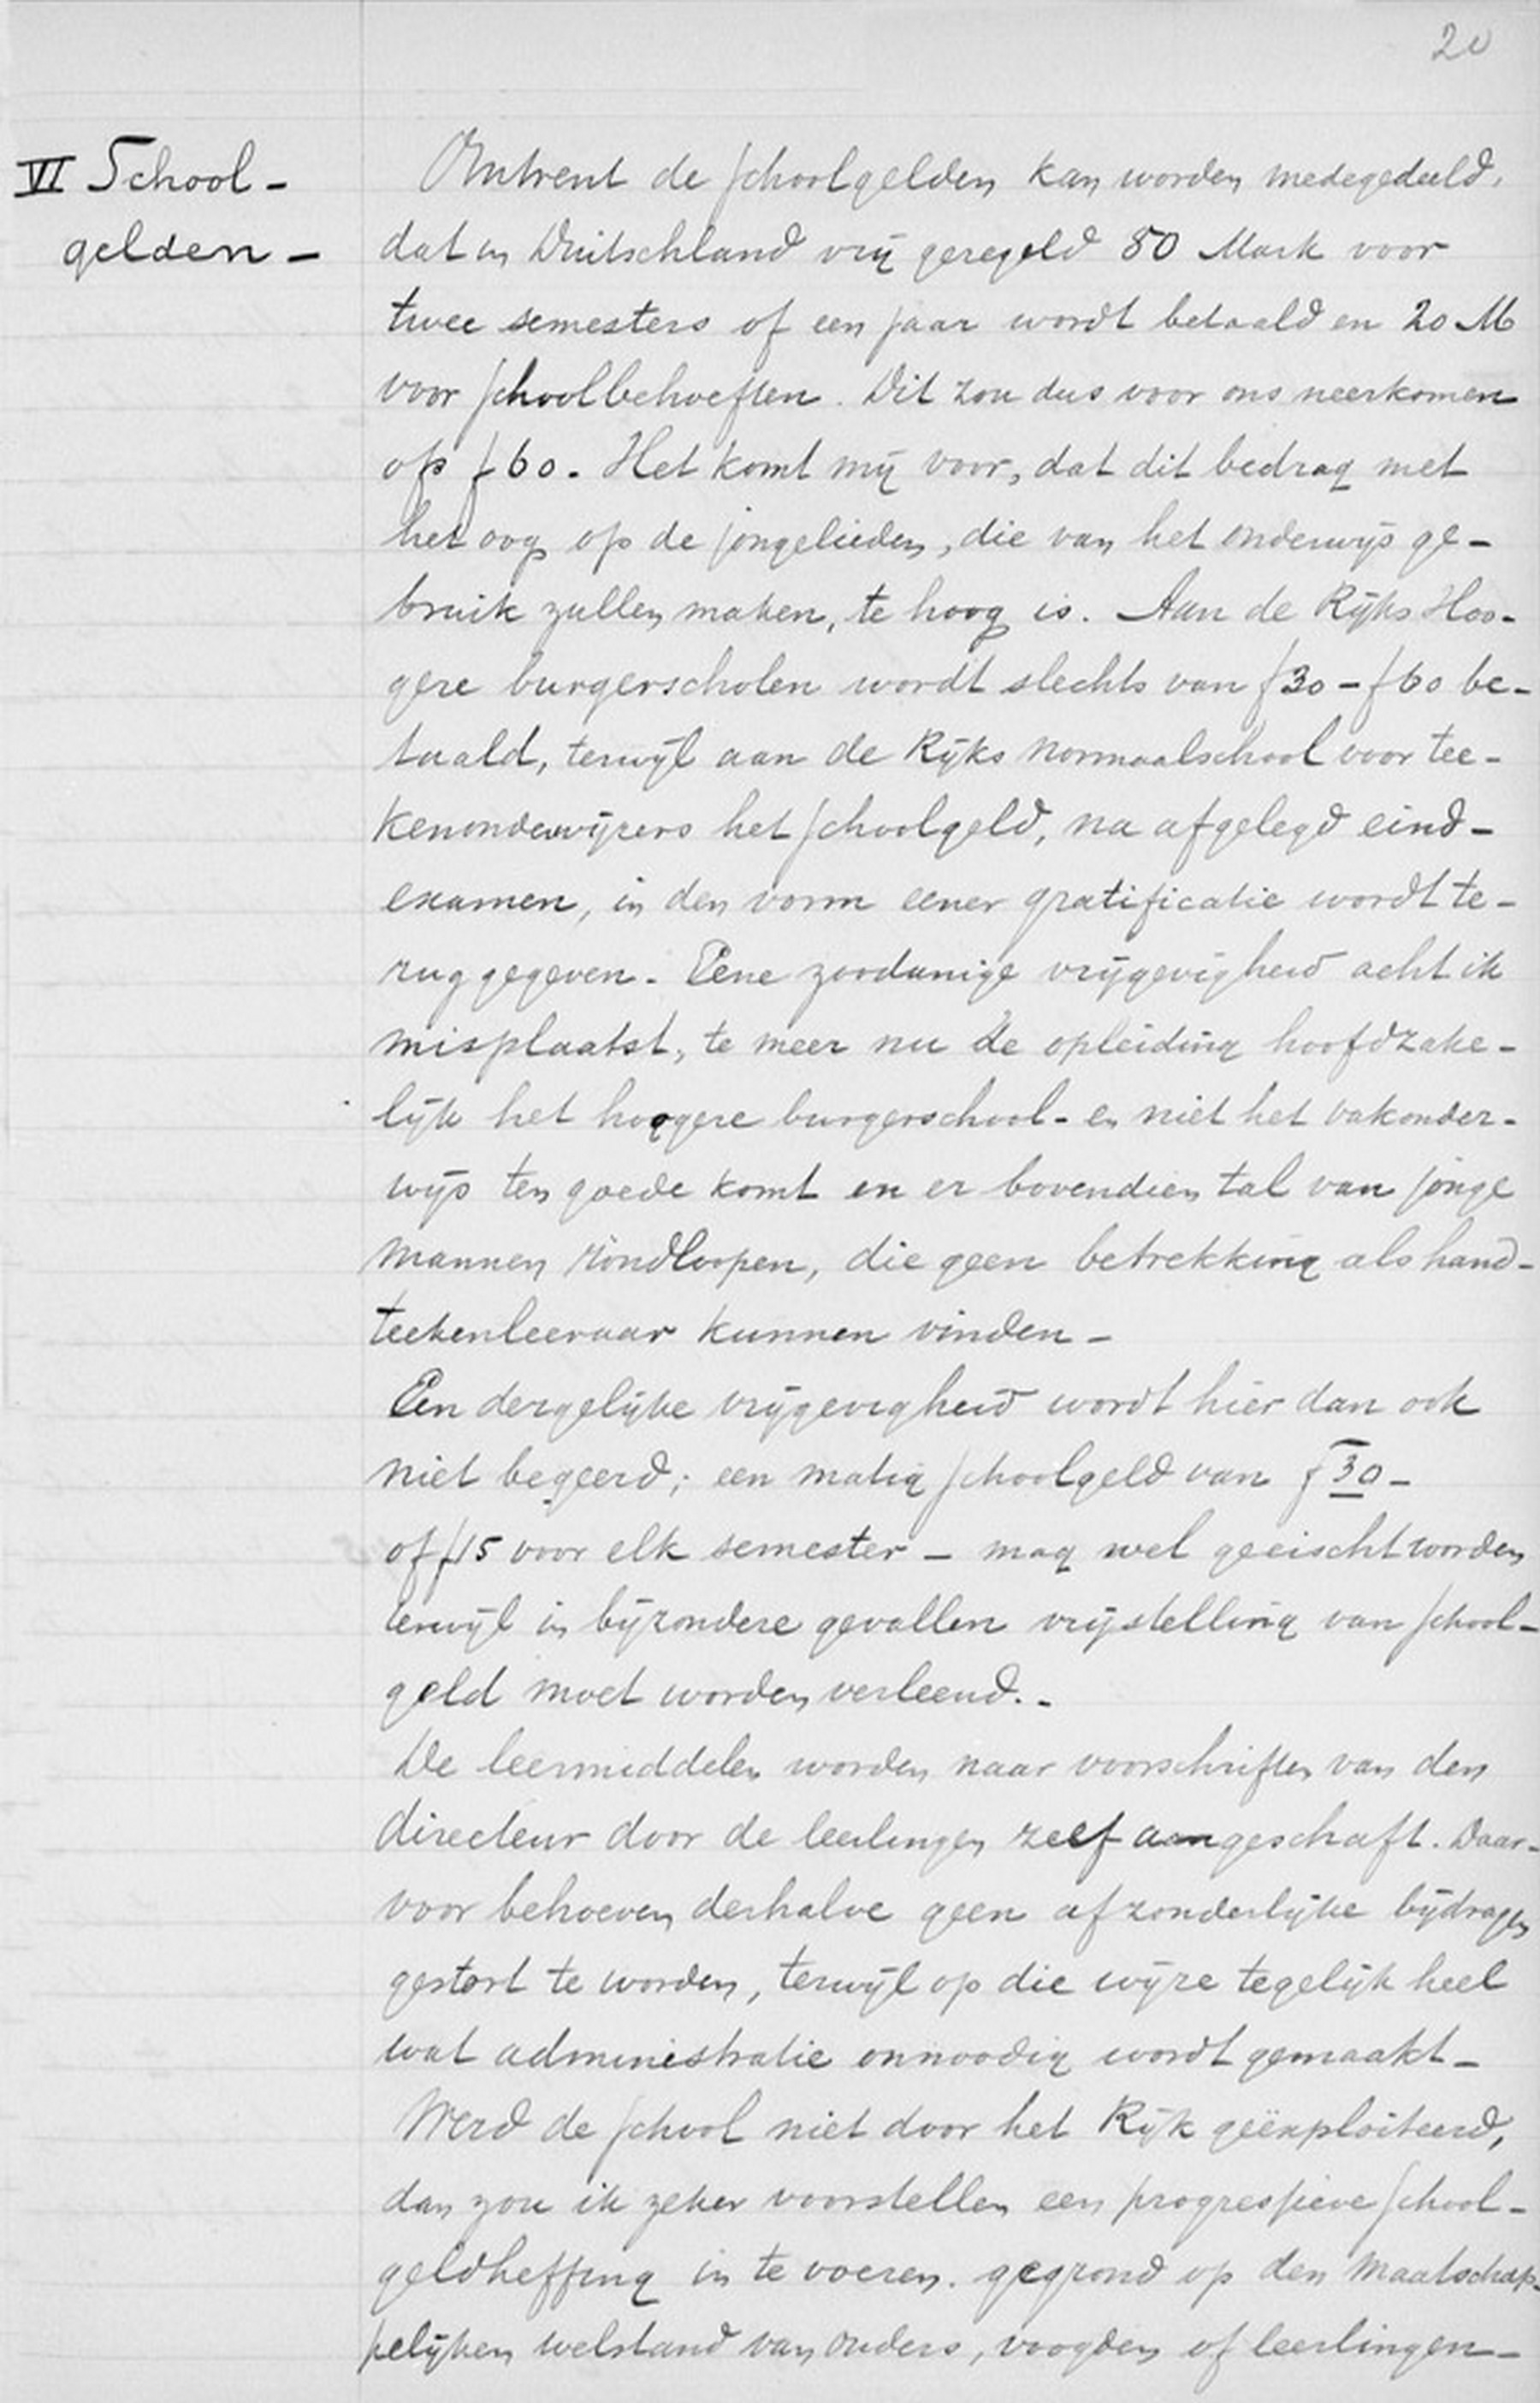 20
VI School-
gelden-
Omtrent de schoolgelden kan worden medegedeeld,
dat in Duitschland vrij geregeld 80 Mark voor
twee semesters of een jaar wordt betaald en 20 M
voor schoolbehoeften. Dit zou dus voor ons neerkomen
op f 60. Het komt mij voor, dat dit bedrag met
het oog op de jongelieden, die van het onderwijs ge-
bruik zullen maken, te hoog is. Aan de Rijks Hoo-
gere burgerscholen wordt slechts van f 30 - f 60 be-
taald, terwijl aan de Rijks normaalschool voor tee-
kenonderwijzers het schoolgeld, na afgelegd eind-
examen, in den vorm eener gratificatie wordt te-
rug gegeven. Eene zoodanige vrijgevigheid acht ik
misplaatst, te meer nu de opleiding hoofdzake-
lijk het hoogere burgerschool- en niet het vakonder-
wijs ten goede komt en er bovendien tal van jonge
mannen rondloopen, die geen betrekking als hand-
teekenleeraar kunnen vinden-
Een dergelijke vrijgevigheid wordt hier dan ook
niet begeerd; een matig schoolgeld van f 30-
of f 15 voor elk semester - mag wel geeischt worden
terwijl in bijzondere gevallen vrijstelling van school-
geld moet worden verleend.-
De leermiddelen worden naar voorschriften van den
directeur door de leerlingen zelf aangeschaft. Daar-
voor behoeven derhalve geen afzonderlijke bijdragen
gestort te worden, terwijl op die wijze tegelijk heel
wat administratie onnoodig wordt gemaakt-
Werd de school niet door het Rijk geëxploiteerd,
dan zou ik zeker voorstellen een progressieve school-
geldheffing in te voeren. gegrond op den maatschap-
pelijken welstand van ouders, voogden of leerlingen-